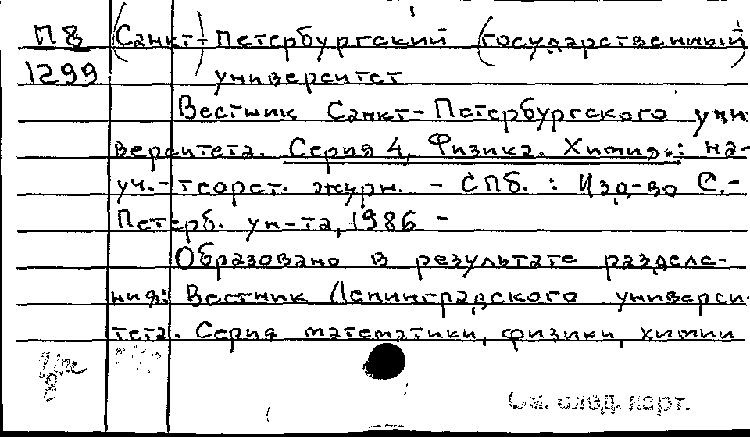 П8 (Санкт-)Петербургский (государственный)
1299 университет
Вестник Санкт-Петербургского уни-
верситета. Серия 4, Физика. Химия.: на-
уч.-теорет. журн. - СПб. : Изд-во С.-
Петерб. ун-та, 1986 -
Образовано в результате разделе-
ния: Вестник Ленинградского универси-
тета. Серия математики, физики, химии
См. след. карт.